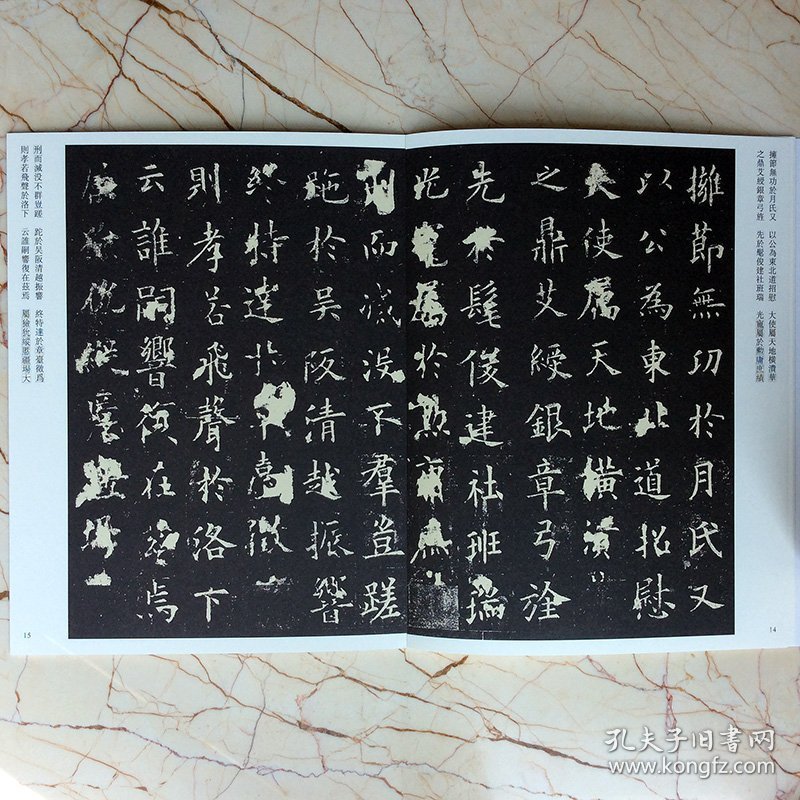 擁節無功於月氏又　以公為東北道招慰　大使屬天地橫潰華
之鼎艾綬銀章弓旌　先於髦俊建社班瑞　光寵屬於勲庸庶績
14
擁節無功於月氏又
以公為東北道招慰
大使屬天地橫潰
之鼎艾綬銀章弓旌
先於髦俊建社班瑞
光寵屬於勲庸庶
刑而滅没不羣豈蹉
跎於吴阪清越振響
終特達於章臺徵
則孝若飛聲於洛下
云誰嗣響復在茲焉
縱慝疆埸
刑而滅没不群豈蹉　跎於吴阪清越振響　終特達於章臺徵為
則孝若飛聲於洛下　云誰嗣響復在茲焉　屬獫狁縱慝疆埸大
15
孔夫子旧书网
www.kongfz.com